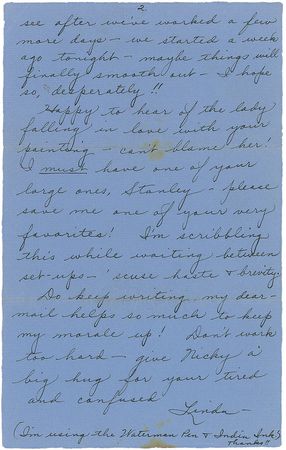 2
see after we've worked a few
more days — we started a week
ago tonight — maybe things will
finally smooth out — I hope
so, desperately!!
Happy to hear of the lady
falling in love with your
painting — can't blame her!
I must have one of your
large ones, Stanley — please
save me one of your very
favorites! I'm scribbling
this while waiting between
set-ups — 'scuse haste & brevity.
Do keep writing, my dear —
mail helps so much to keep
my morale up! Don't work
too hard — give Nicky a
big hug for your tired
and confused
Linda —
(I'm using the Waterman Pen & India Ink!)
Thanks!!